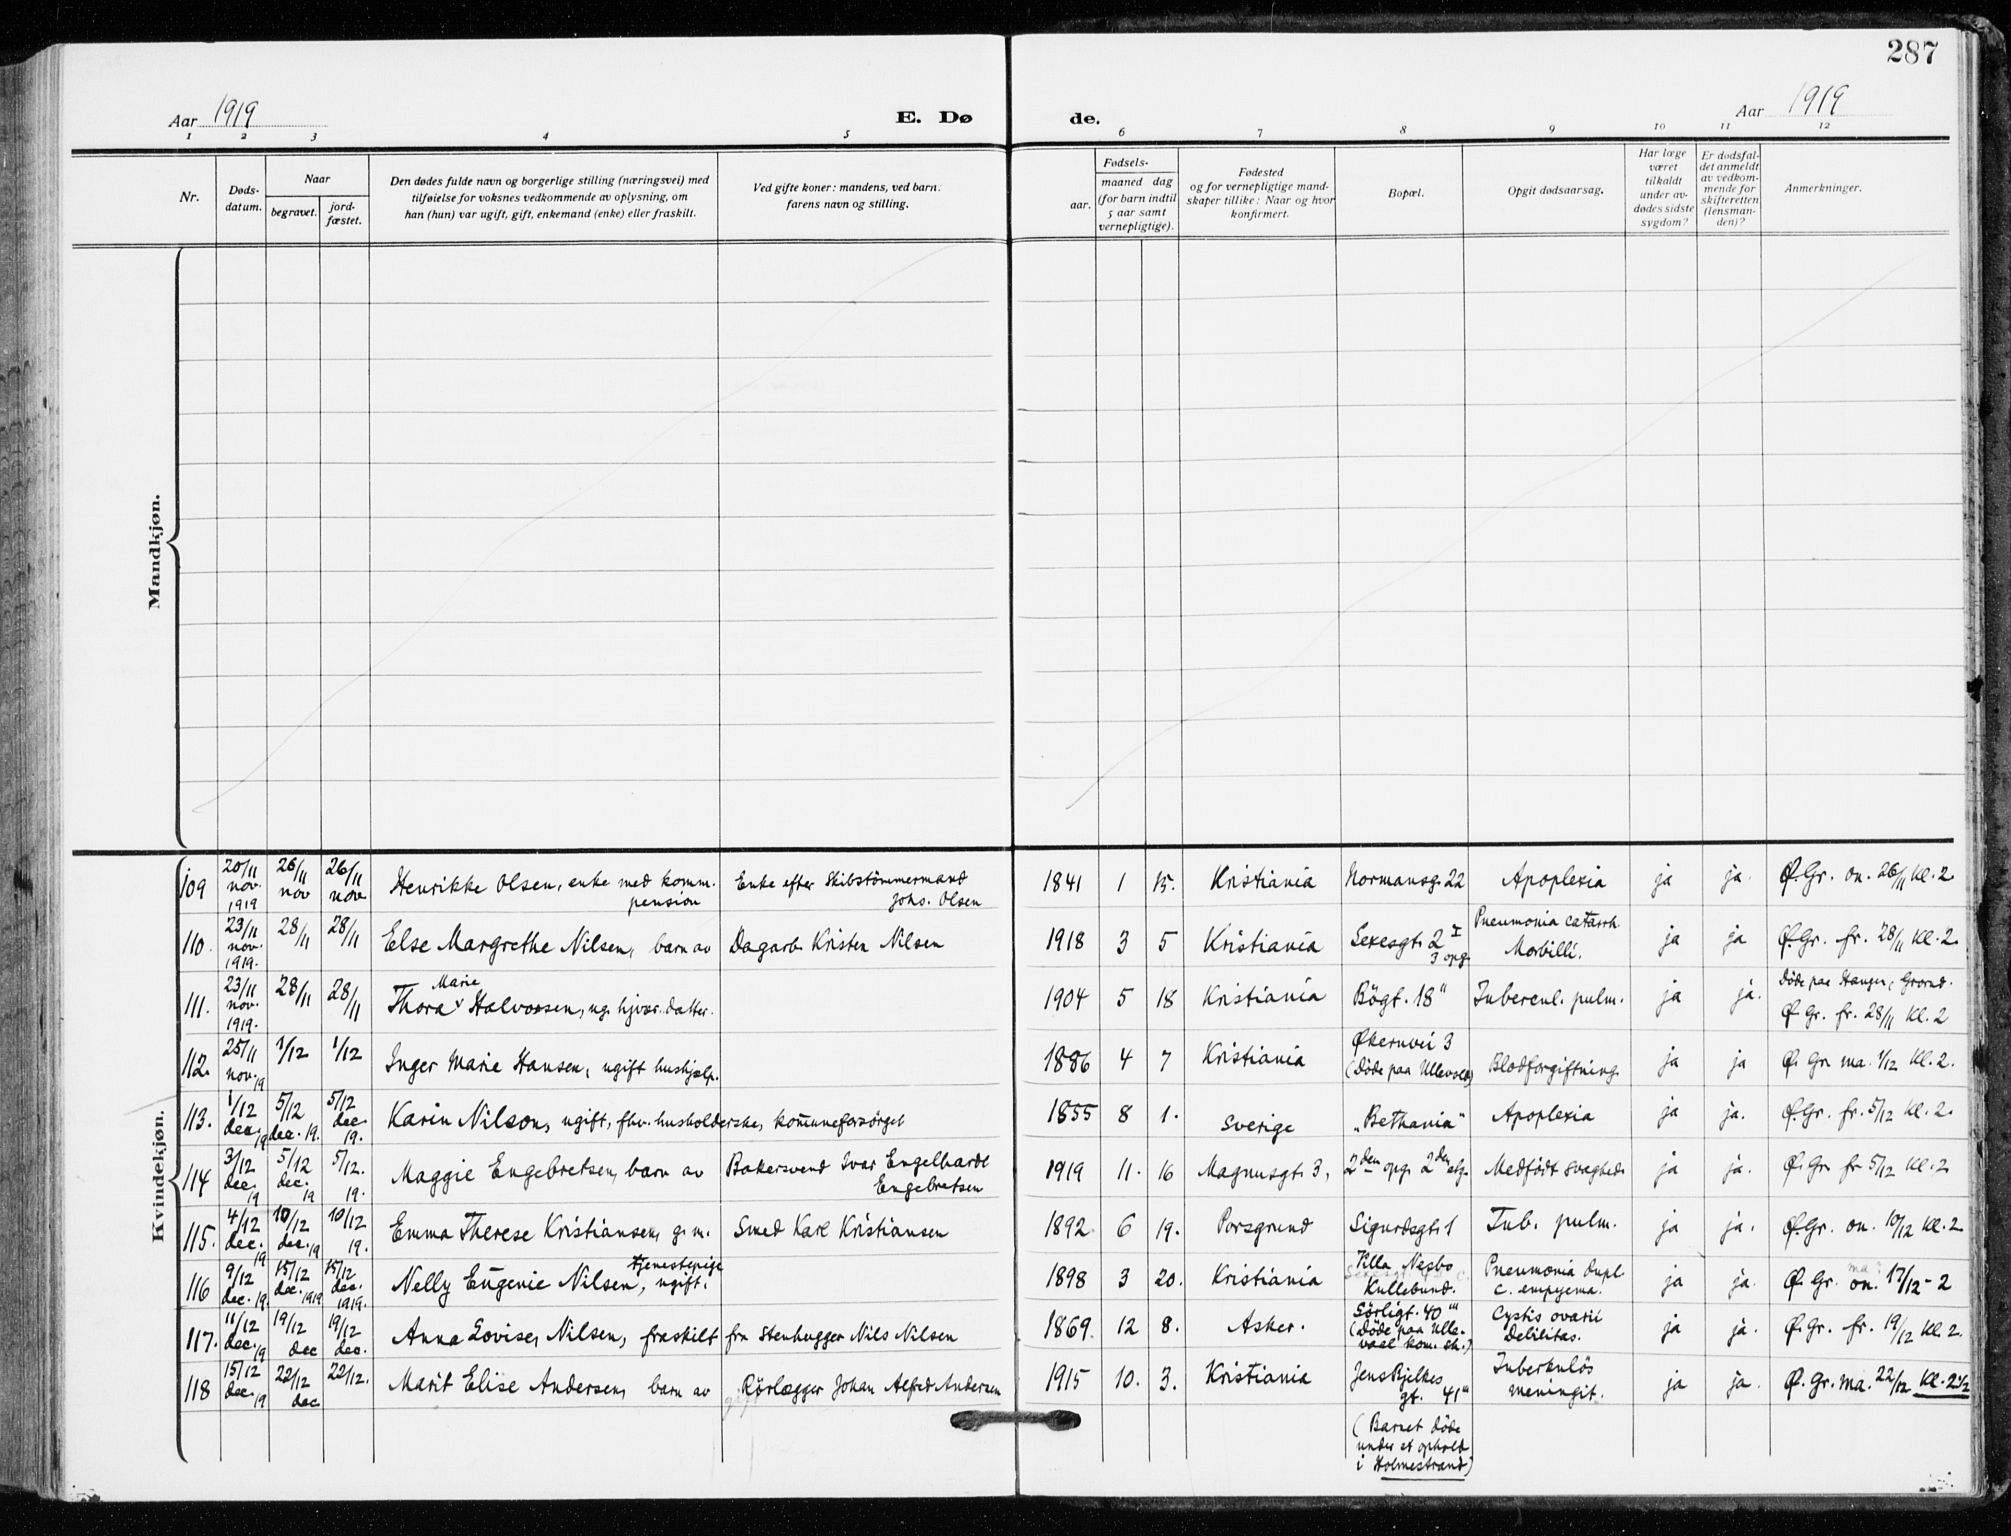 287
Aar 1919
E. Dø
de.
Aar 1919
1 2 3 4 5 6 7 8 9 10 11 12
Nr.
Døds-
datum.
Naar
begravet.
jord-
fæstet.
Den dødes fulde navn og borgerlige stilling (næringsvei) med
tilføielse for voksnes vedkommende av oplysning, om
han (hun) var ugift, gift, enkemand (enke) eller fraskilt.
Ved gifte koner: mandens, ved barn:
farens navn og stilling.
Fødsels-
aar.
maaned dag
(for barn indtil
5 aar samt
vernepligtige).
Fødested
og for vernepligtige mand-
skaper tillike: Naar og hvor
konfirmert.
Bopæl.
Opgit dødsaarsag.
Har læge
været
tilkaldt
under av-
dødes sidste
sygdom?
Er dødsfal-
det anmeldt
av vedkom-
mende for
skifteretten
(lensman-
den)?
Anmerkninger.
Mandkjøn.
Kvindekjøn.
109 20/11 nov. 1919 26/11 nov 26/11 nov Henrikke Olsen, enke med komm. pension Enke efter Skibstömmermand Johs. Olsen 1841 1 15. Kristiania Normansg. 22 Apoplexia ja ja. Ø. Gr. on. 26/11 Kl. 2.
110. 23/11 nov. 1919. 28/11 28/11 Else Margrethe Nilsen, barn av Dagarb. Kristen Nilsen 1918 3 5 Kristiania Sexesgt. 2 I 3 opg. Pneumonia catarrh. Morbilli. ja ja Ø. Gr. fr. 28/11 Kl. 2.
111. 23/11 nov. 1919. 28/11 28/11 Thora v Marie Halvorsen, ug. datter. 1904 5 18 Kristiania Bögt. 18" Tubercul. pulm. ja ja. Döde paa Ø. Gr. fr. 28/11 Kl. 2
112. 25/11 nov. 19 1/12 1/12 Inger Marie Hansen, ugift hushjælp. 1886 4 7 Kristiania Økernvei 3 (Döde paa Ullevold) Blodforgiftning. ja ja Ø. Gr. ma. 1/12 Kl. 2.
113. 1/12 dec. 19 5/12 dec. 19. 5/12 dec. 19. Karin Nilson, ugift, fhv. husholderske, kommuneforsörget 1855 8 1. Sverige "Bethania" Apoplexia ja ja. Ø. Gr. fr. 5/12 Kl. 2.
114 3/12 dec. 19 5/12 dec. 19 5/12. 19. Maggie Engebretsen, barn av Bakersvend Ivar Engelhardt Engebretsen 1919 11. 16 Magnusgt. 3, 2den opg. 2den etg. Medfödt svaghed. ja ja. Ø. Gr. fr 5/12 Kl. 2.
115. 4/12 dec. 19 10/12 dec. 19 10/12 19. Emma Therese Kristiansen, g. m. Smed Karl Kristiansen 1892. 6 19. Porsgrund Sigurdsgt. 1 Tub. pulm. ja ja. Ø. Gr. on. 10/12 Kl. 2
116 9/12 dec. 19. 15/12 dec. 1919 15/12 dec. 1919. Nelly Eugenie Nilsen, tjenestepige ugift. 1898 3 20. Kristiania Villa Nesbo Kullebund. Pneumonia dupl. c. empyema. ja ja. Ø. Gr. ma: on. 17/12 - 2
117. 11/12 dec. 19 19/12 dec 19/12 dec. Anna Lovise, Nilsen, fraskilt fra Stenhugger Nils Nilsen 1869. 12 8. Asker. Sörligt. 40 "' (Döde paa Ulle- vaal kom. sh.) Cystis ovarii Debilitas. ja ja. Ø. Gr. fr. 19/12 Kl. 2.
118 15/12 dec. 19 22/12 dec 22/12. Marit Elise Andersen, barn av Rörlægger Johan Alfred Andersen 1915 10. 3. Kristiania Jens Bjelkes gt. 41" (Barnet döde under et ophold i Holmestrand) Tuberkulös meningit. ja ja. Ø. Gr. ma. 22/12 Kl. 2 1/2